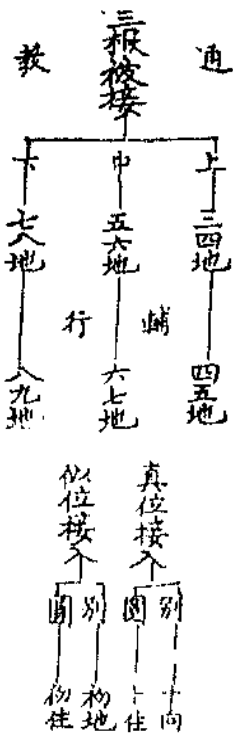 通教
三根被接
上 三四地 四五地
中 五六地 六七地
下 七八地 八九地
輔行
真位接入
別 十向
圓 十住
似位接入
別 初地
圓 初住